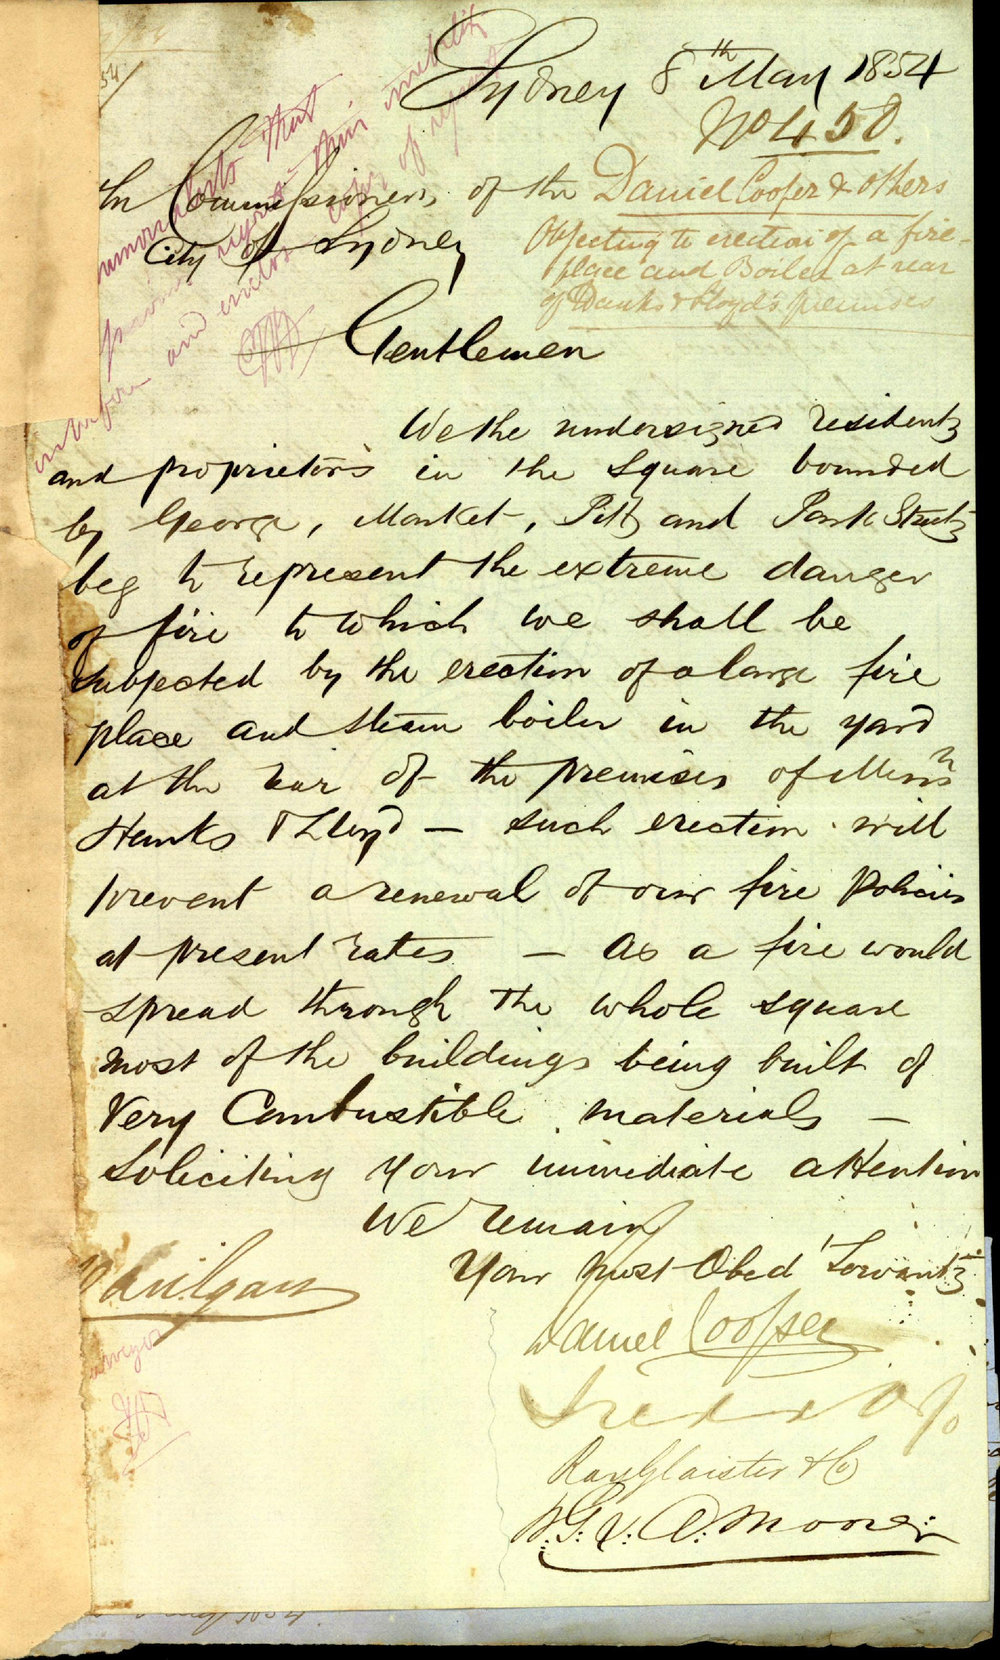 Sydney 8th May 1854
No 450.
The Commissioners of the
City of Sydney
Daniel Cooper & others
Objecting to erection of a fire-
place and Boiler at rear
of Hanks & Lloyd's premises
Gentlemen
We the undersigned residents
and proprietors in the square bounded
by George, Market, Pitt and Park Streets
beg to represent the extreme danger
of fire to which we shall be
subjected by the erection of a large fire
place and steam boiler in the yard
at the rear of the premises of Messrs
Hanks & Lloyd — such erection will
prevent a renewal of our fire policies
at present rates — as a fire would
spread through the whole square
most of the buildings being built of
Very Combustible materials —
Soliciting your immediate attention
We remain
Your most Obed Servants
Daniel Cooper
Ray Glaister & Co
Moore
that
and
of
54